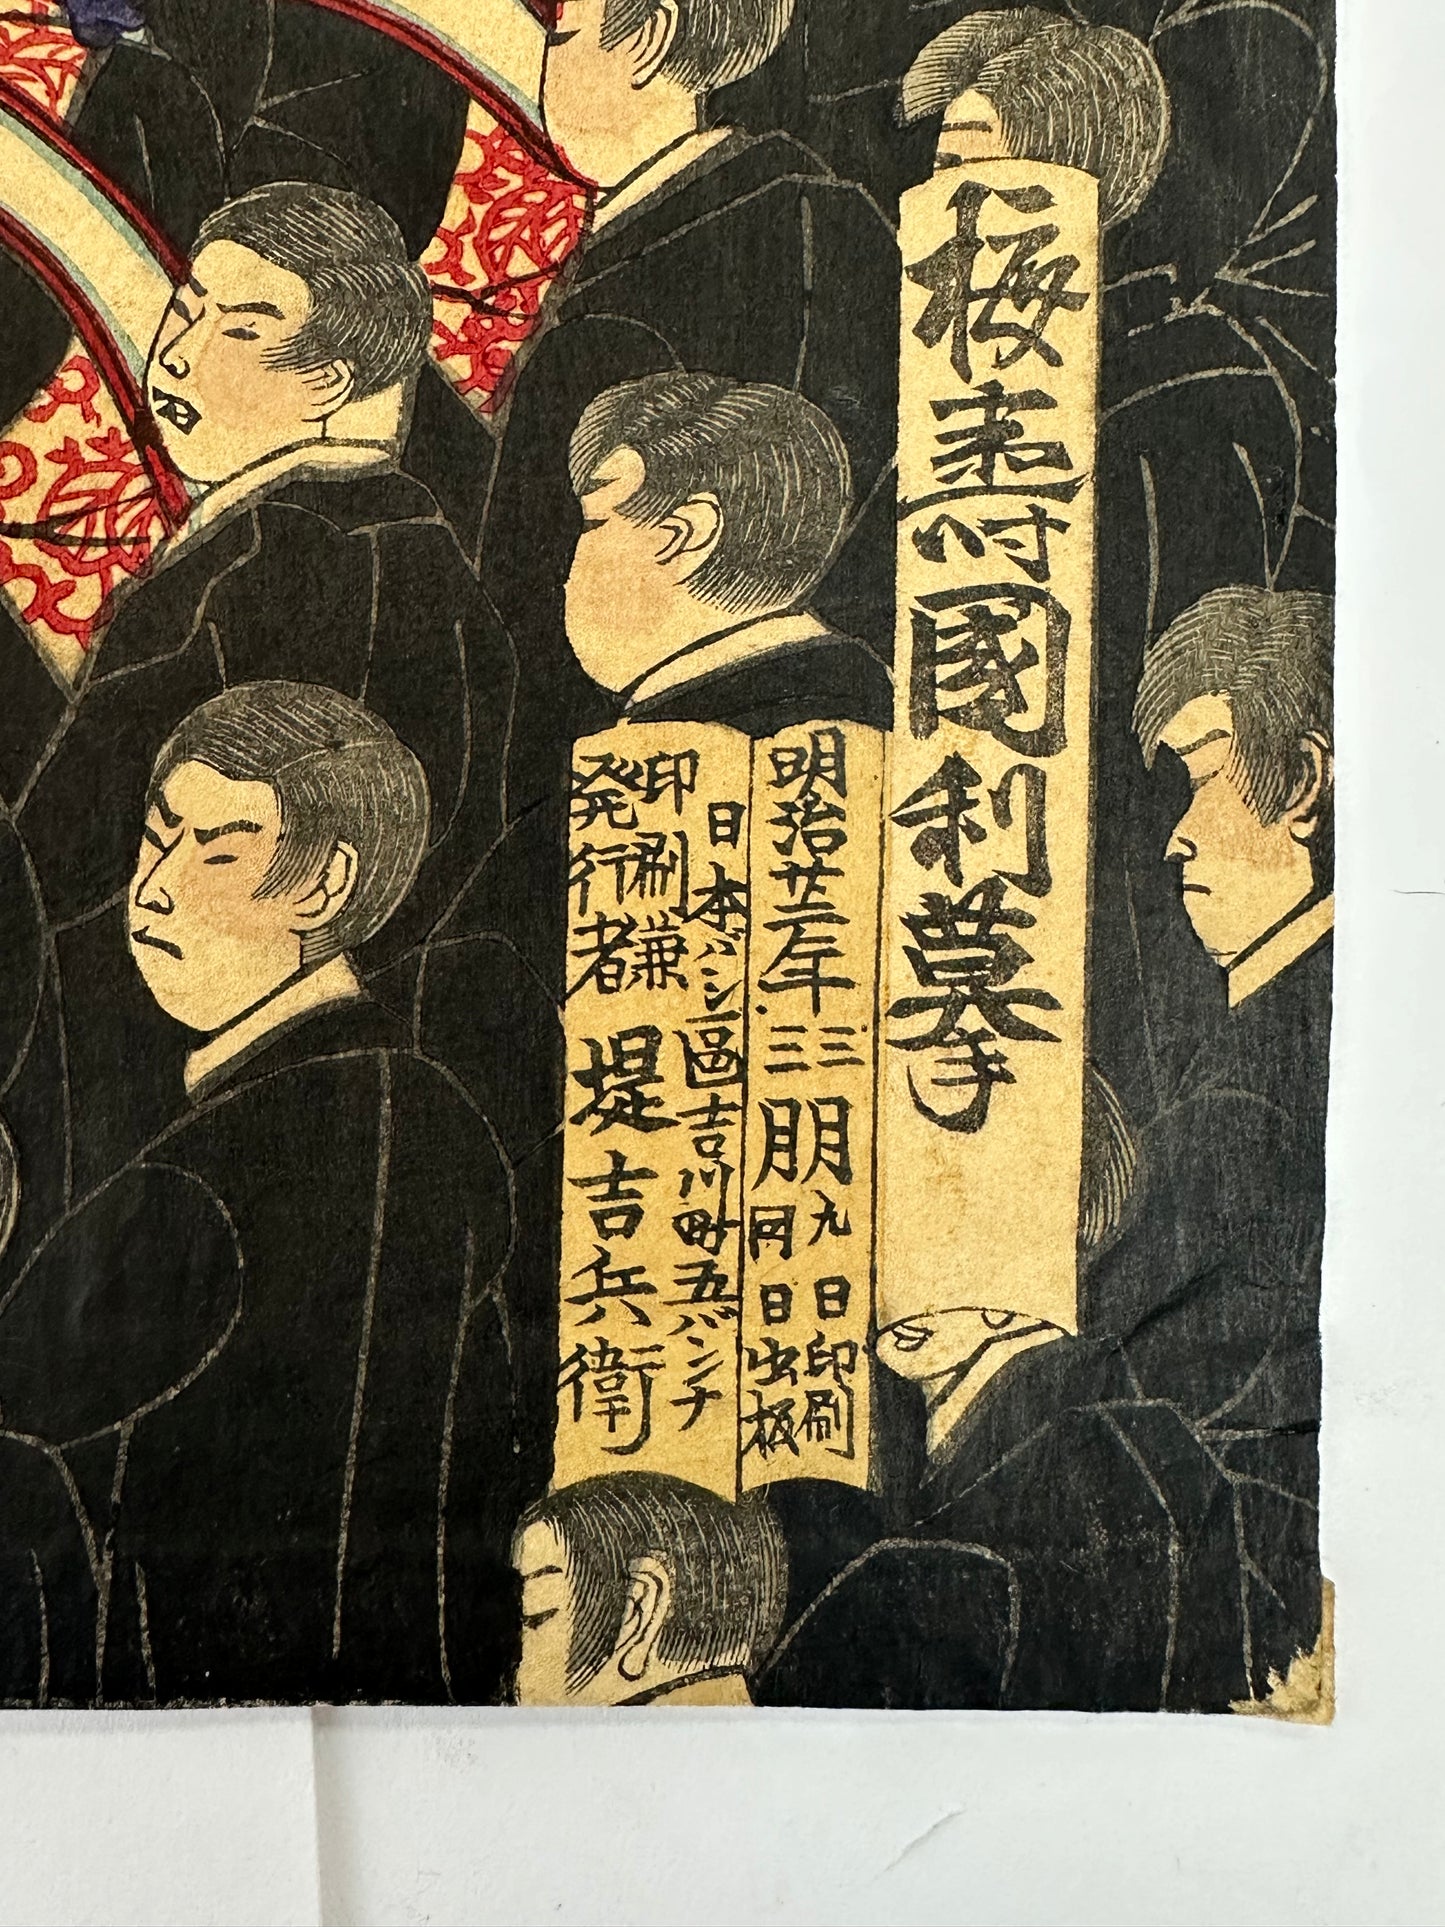 梅壽國利摹
明治廿二年
三月九日印刷
三月同日出板
日本バシ區吉川町五バンチ
印刷兼
発行者
堤吉兵衛